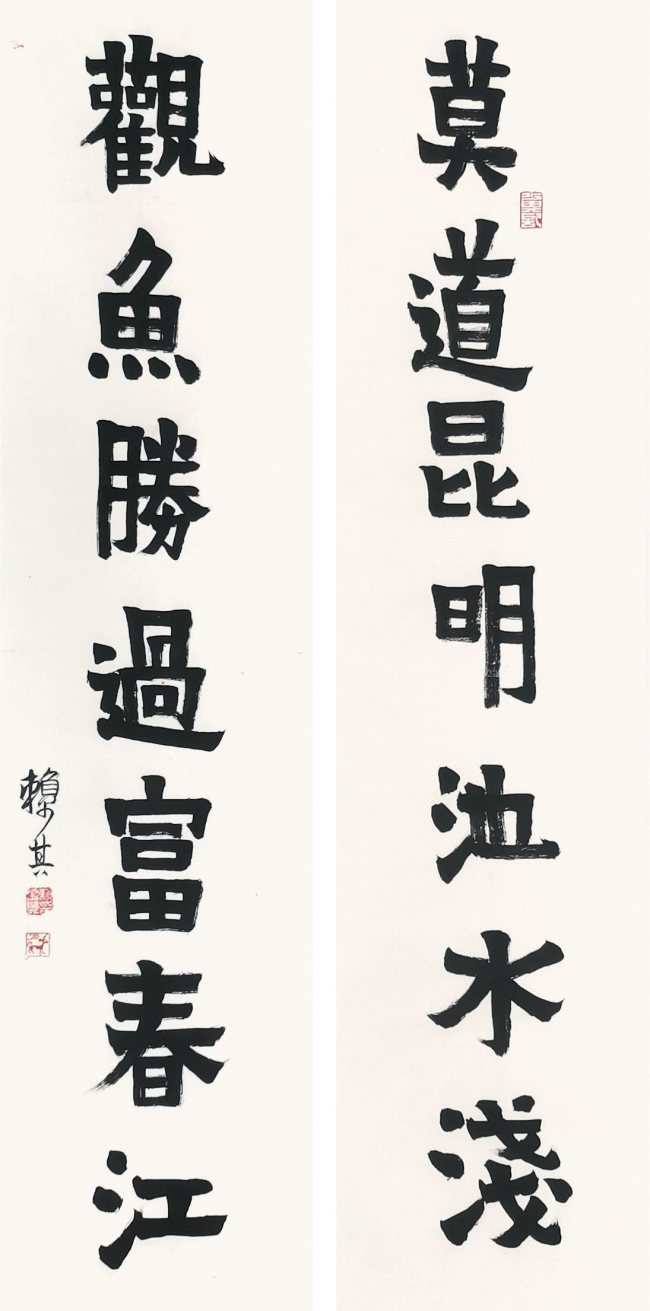 莫道昆明池水淺
觀魚勝過富春江
賴少其